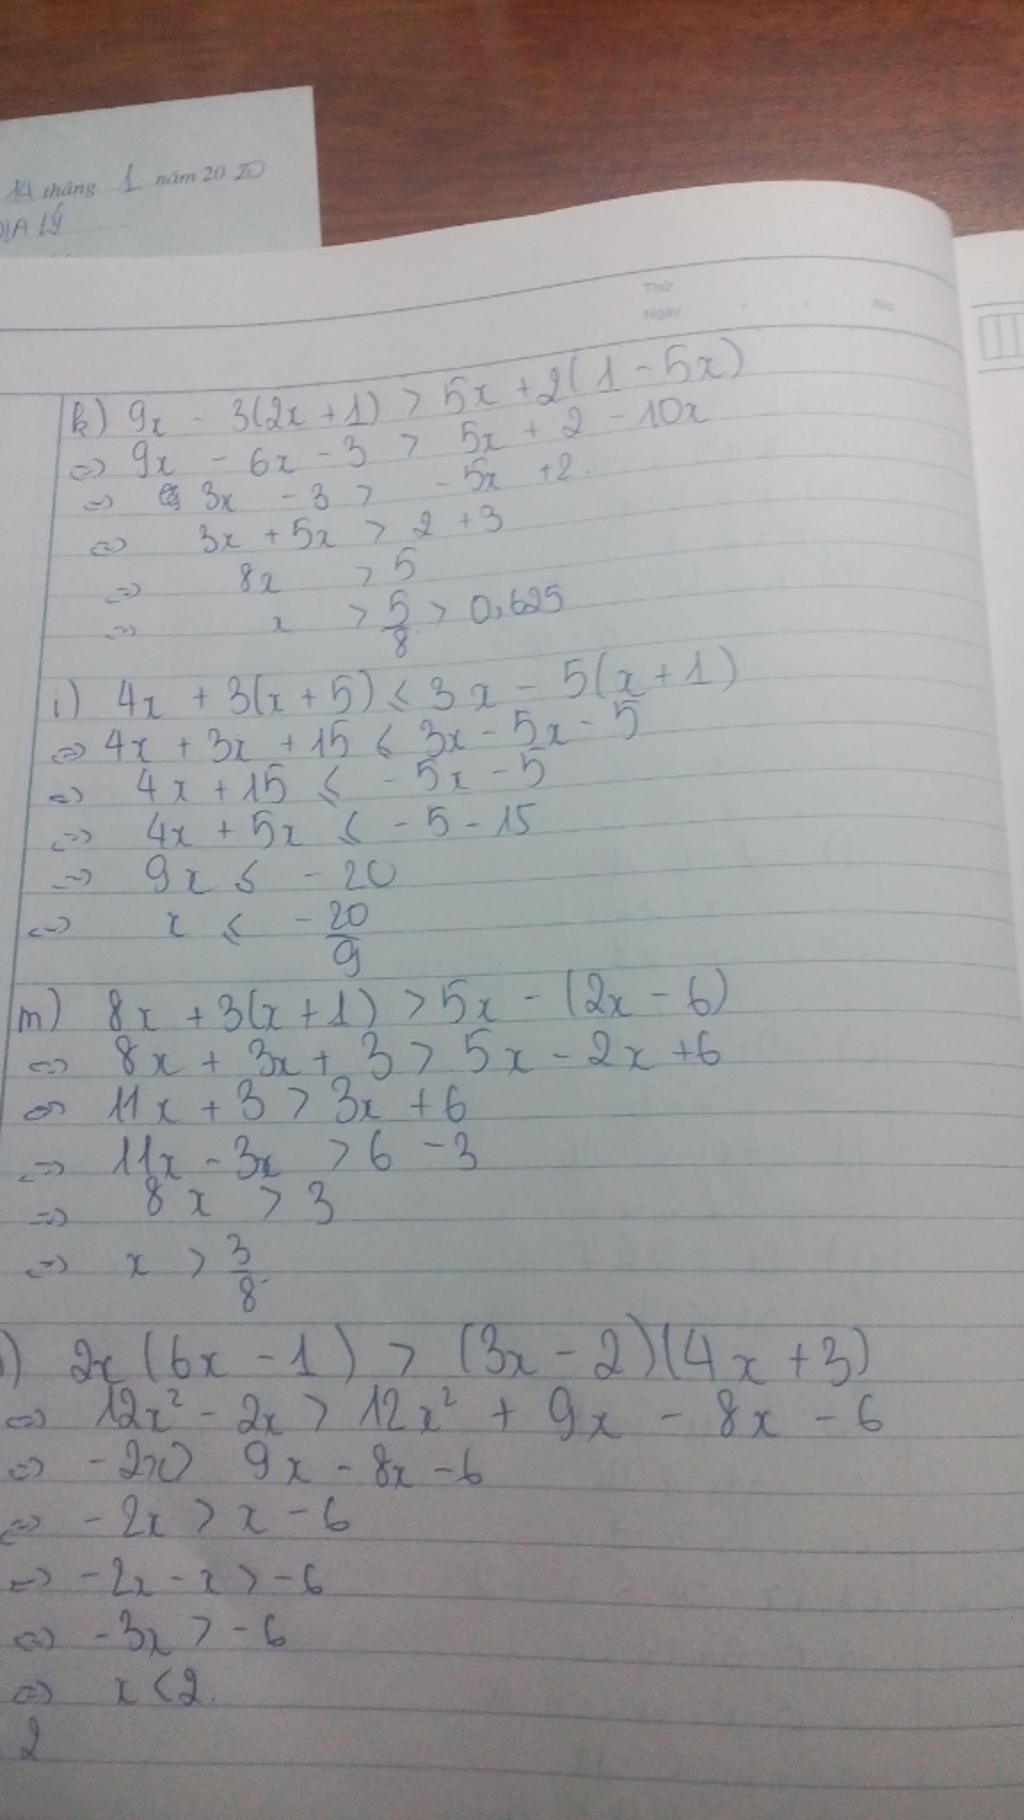 14 tháng 1 năm 2020
ĐỊA LÝ
Thứ
Ngày
No.
k) 9x - 3(2x + 1) > 5x + 2(1 - 5x)
⇔ 9x - 6x - 3 > 5x + 2 - 10x
⇔ 3x - 3 > - 5x + 2.
⇔ 3x + 5x > 2 + 3
⇔ 8x > 5
⇔ x > 5/8 > 0,625
i) 4x + 3(x + 5) ≤ 3x - 5(x + 1)
⇔ 4x + 3x + 15 ≤ 3x - 5x - 5
⇔ 4x + 15 ≤ - 5x - 5
⇔ 4x + 5x ≤ - 5 - 15
⇔ 9x ≤ - 20
⇔ x ≤ - 20/9
m) 8x + 3(x + 1) > 5x - (2x - 6)
⇔ 8x + 3x + 3 > 5x - 2x + 6
⇔ 11x + 3 > 3x + 6
⇔ 11x - 3x > 6 - 3
⇔ 8x > 3
⇔ x > 3/8.
) 2x (6x - 1) > (3x - 2)(4x + 3)
⇔ 12x² - 2x > 12x² + 9x - 8x - 6
⇔ - 2x > 9x - 8x - 6
⇔ - 2x > x - 6
⇔ - 2x - x > - 6
⇔ - 3x > - 6
⇔ x < 2.
2